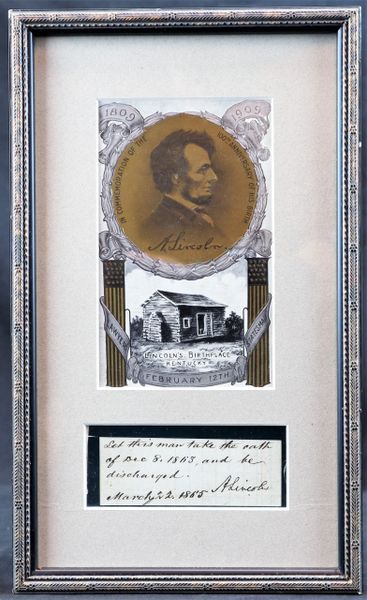 1809
1909
IN COMMEMORATION OF THE
100TH ANNIVERSARY OF HIS BIRTH
A. Lincoln.
LINCOLN'S BIRTHPLACE
KENTUCKY
FEBRUARY 12TH
Let this man take the oath
of Dec 8. 1863, and be
discharged.
A. Lincoln
March 22. 1865